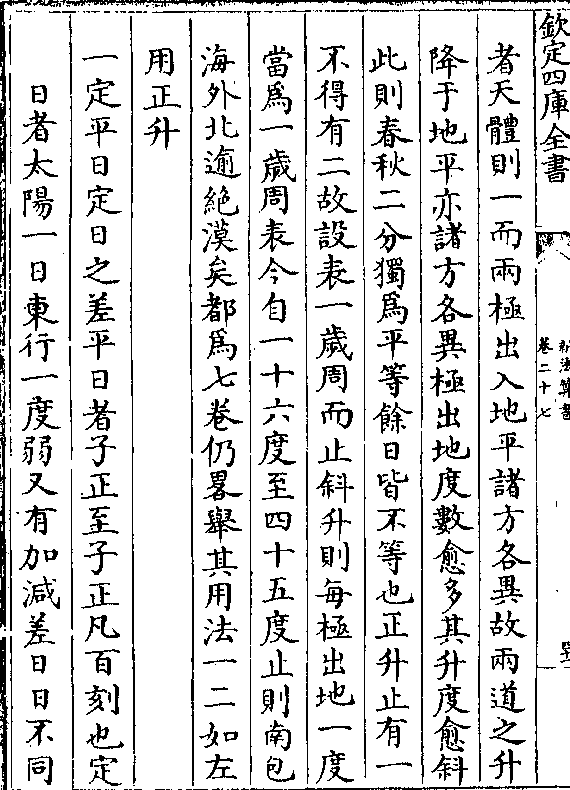 欽定四庫全書
新法算書
卷二十七
者天體則一而兩極出入地平諸方各異故兩道之升
降于地平亦諸方各異極出地度數愈多其升度愈斜
此則春秋二分獨為平等餘日皆不等也正升止有一
不得有二故設表一歲周而止斜升則每極出地一度
當為一歲周表今自一十六度至四十五度止則南包
海外北逾絶漠矣都為七卷仍畧舉其用法一二如左
用正升
一定平日定日之差平日者子正至子正凡百刻也定
日者太陽一日東行一度弱又有加減差日日不同